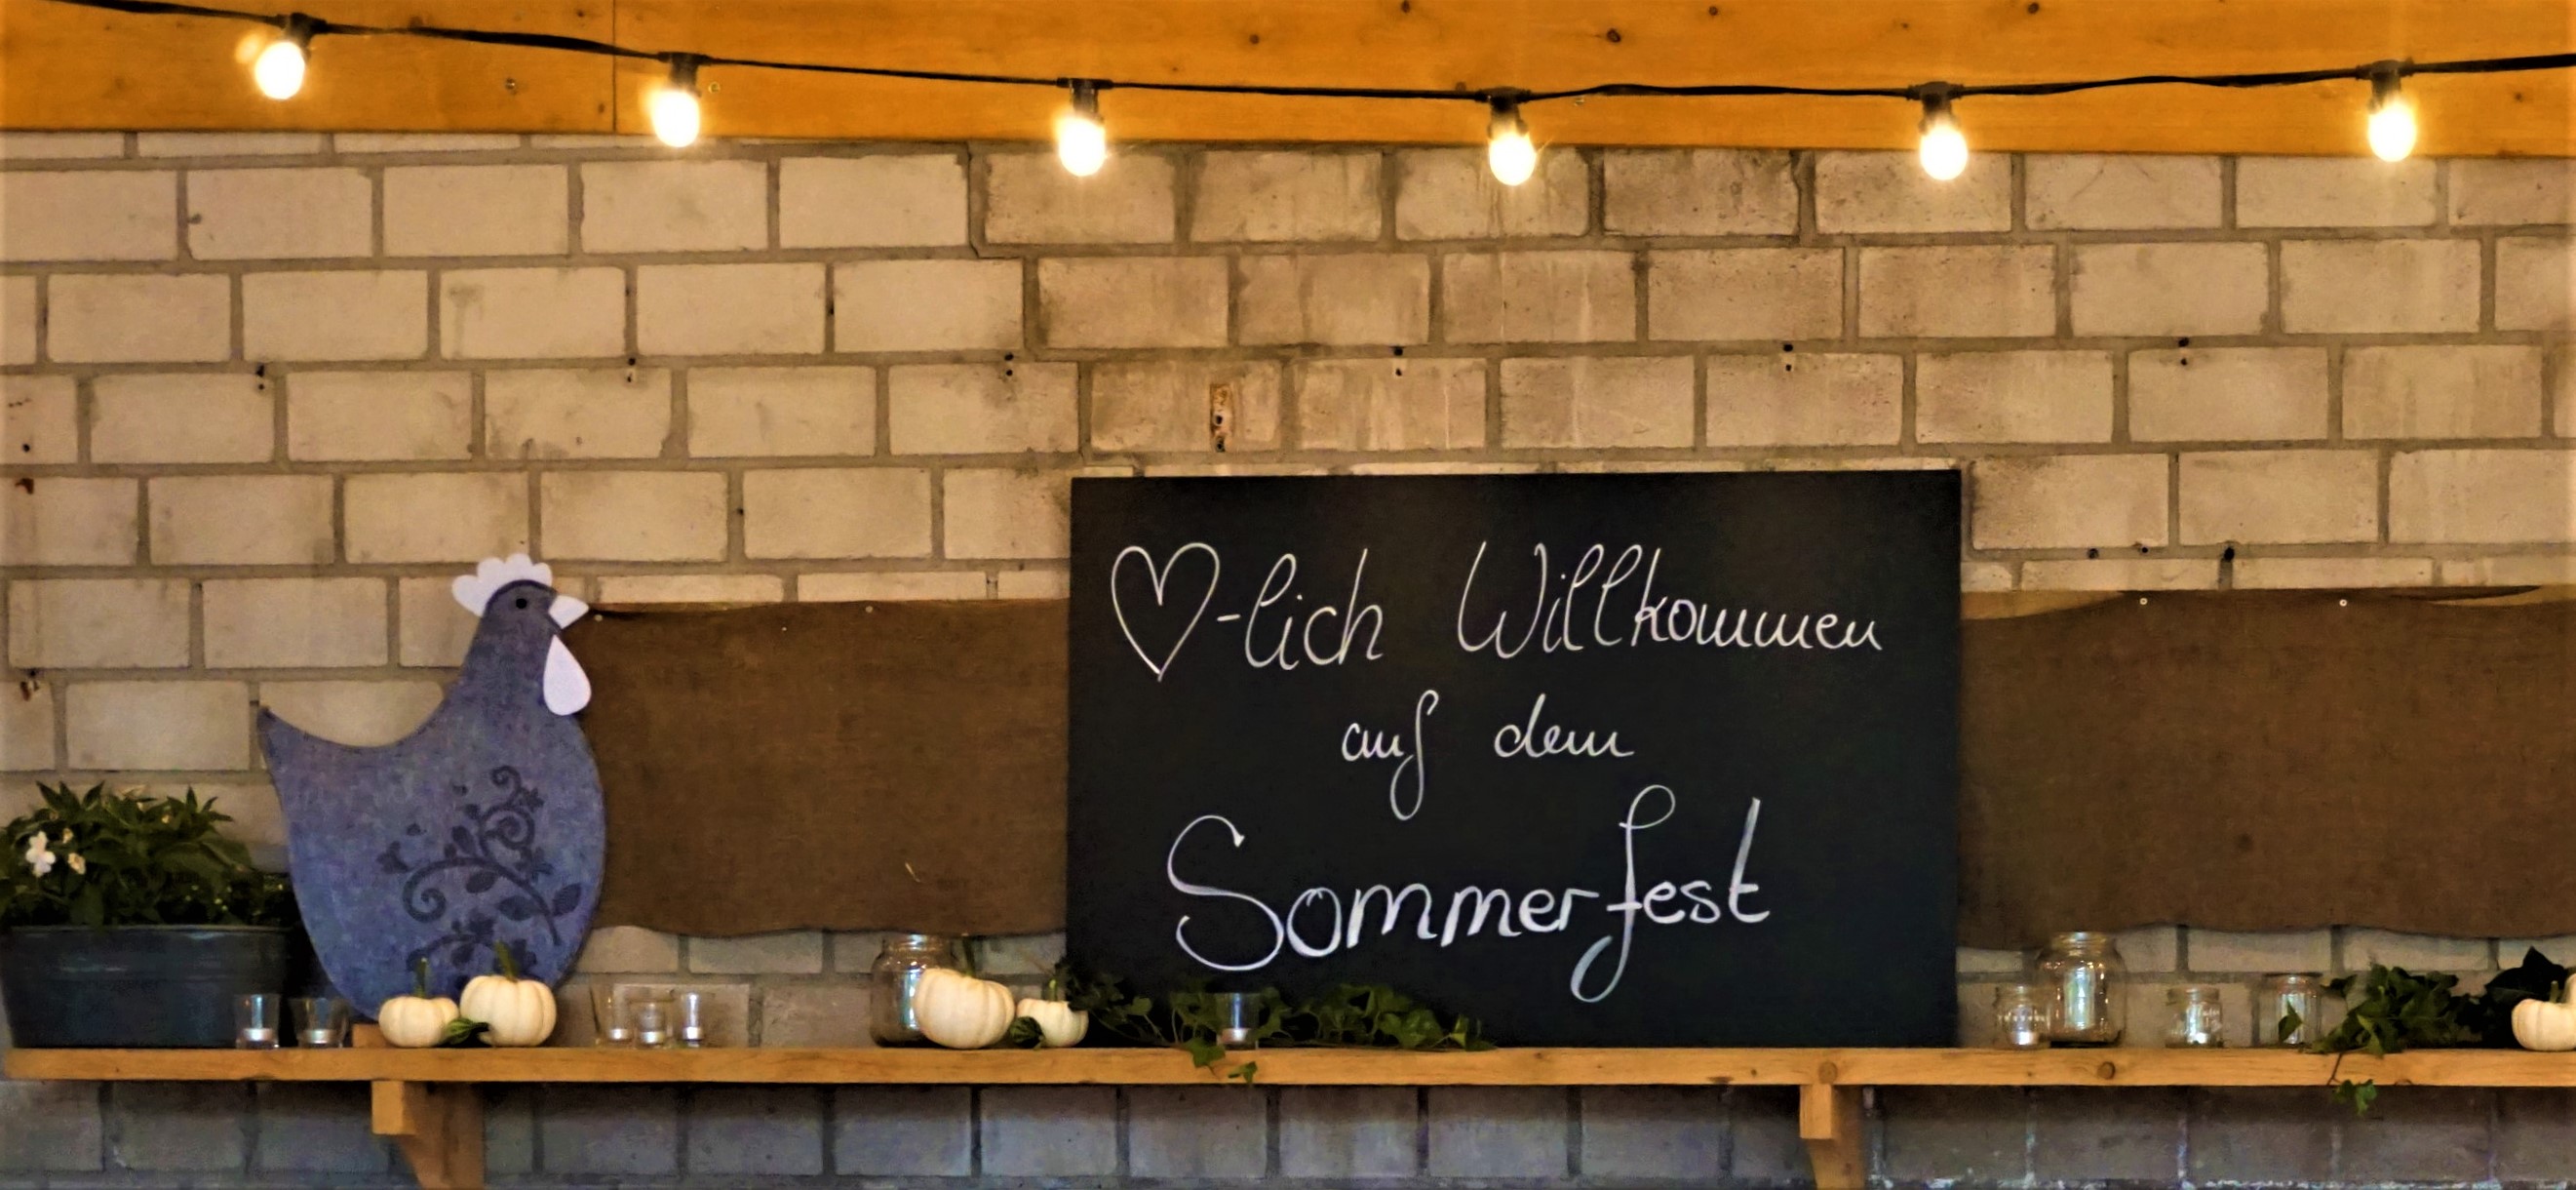 ♡-lich Willkommen
auf dem
Sommerfest